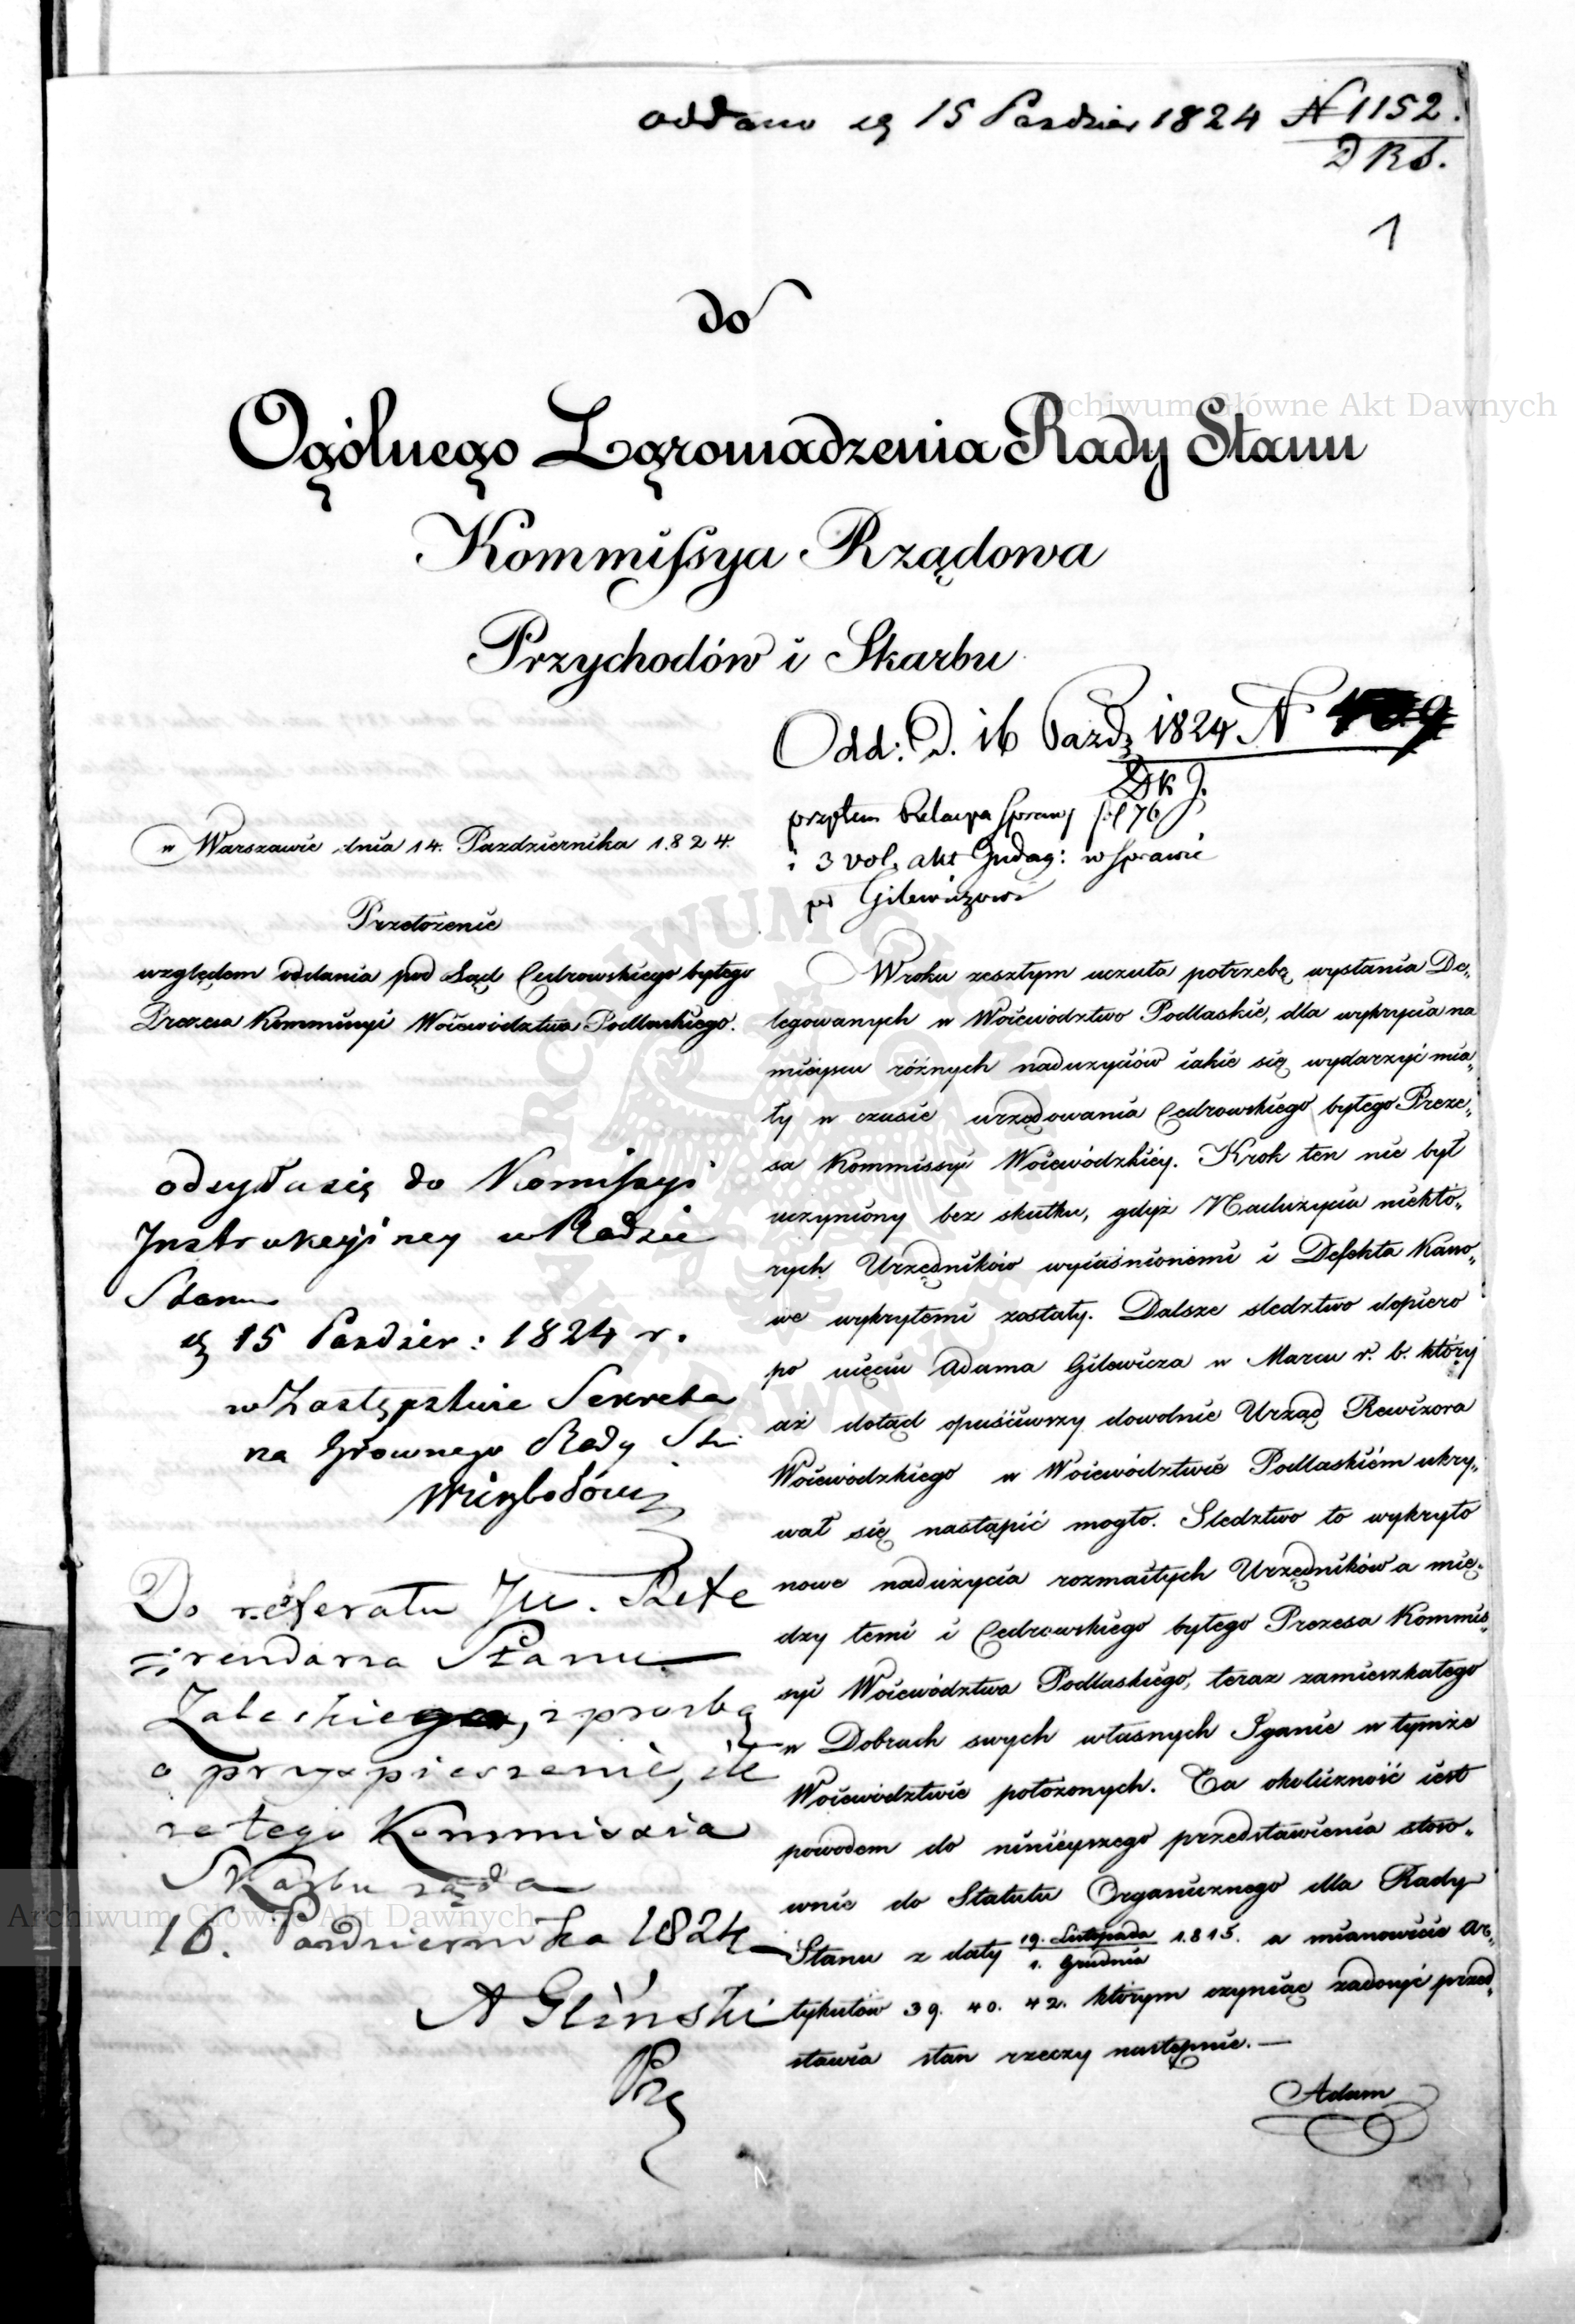 oddano d. 15 Pazdzier 1824 N 1152.
DRS.
1
do
Ogólnego Zgromadzenia Rady Stanu
Kommissya Rządowa
Przychodów i Skarbu
Odd: D. 16 Pazdz 1824 N
DKJ.
przytem Relacya sprawy fol 76
i 3 vol. akt Indag: w sprawie
Gilewiczowi
w Warszawie dnia 14. Pazdziernika 1824.
Przełożenie
względem oddania pod Sąd Cedrowskiego byłego
Prezesa Kommissyi Woiewództwa Podlaskiego.
odsyła się do Komissyi
Instrukcyiney w Radzie
Stanu
d. 15 Pazdzier: 1824 r.
w Zastępstwie Sekreta
na Głownego Rady St:
Do referatu JW. Refe
=rendarza Stanu
Zaleskiego, z prosbą
o przyspieszenie, ile
ze tego Kommissia
Skarbu ząda
16. Pazdziernika 1824
A Gliński
Prz
W roku zeszłym uczuła potrzebę wysłania De„
legowanych w Woiewództwo Podlaskie, dla wykrycia na
mieyscu różnych nadużyciów iakie się wydarzyć mia„
ły w czasie urzędowania Cedrowskiego byłego Preze„
sa Kommissyi Woiewódzkiey. Krok ten nie był
uczyniony bez skutku, gdyż Nadużycia niektó„
rych Urzędników wyiaśnionemi i Defekta Kasso„
we wykrytemi zostały. Dalsze sledztwo dopiero
po uięciu Adama Gilewicza w Marcu r. b. który
aż dotąd opuściwszy dowolnie Urząd Rewizora
Woiewódzkiego w Woiewództwie Podlaskiém ukry„
wał się nastąpić mogło. Sledztwo to wykryło
nowe nadużycia rozmaitych Urzędników a mię„
dzy temi i Cedrowskiego byłego Prezesa Kommis„
syi Woiewództwa Podlaskiego, teraz zamieszkałego
w Dobrach swych własnych Iganie w tymże
Woiewództwie położonych. Ta okoliczność iest
powodem do ninieyszego przedstawienia stoso„
wnie do Statutu Organicznego dla Rady
Stanu z daty 19. Listopada 1815. a mianowicie Ar„
1. Grudnia
tykułów 39. 40. 42. którym czyniąc zadosyć przed„
stawia stan rzeczy następnie. —
Adam
Archiwum Główne Akt Dawnych
Archiwum Główne Akt Dawnych
ARCHIWUM GŁÓWNE AKT DAWNYCH